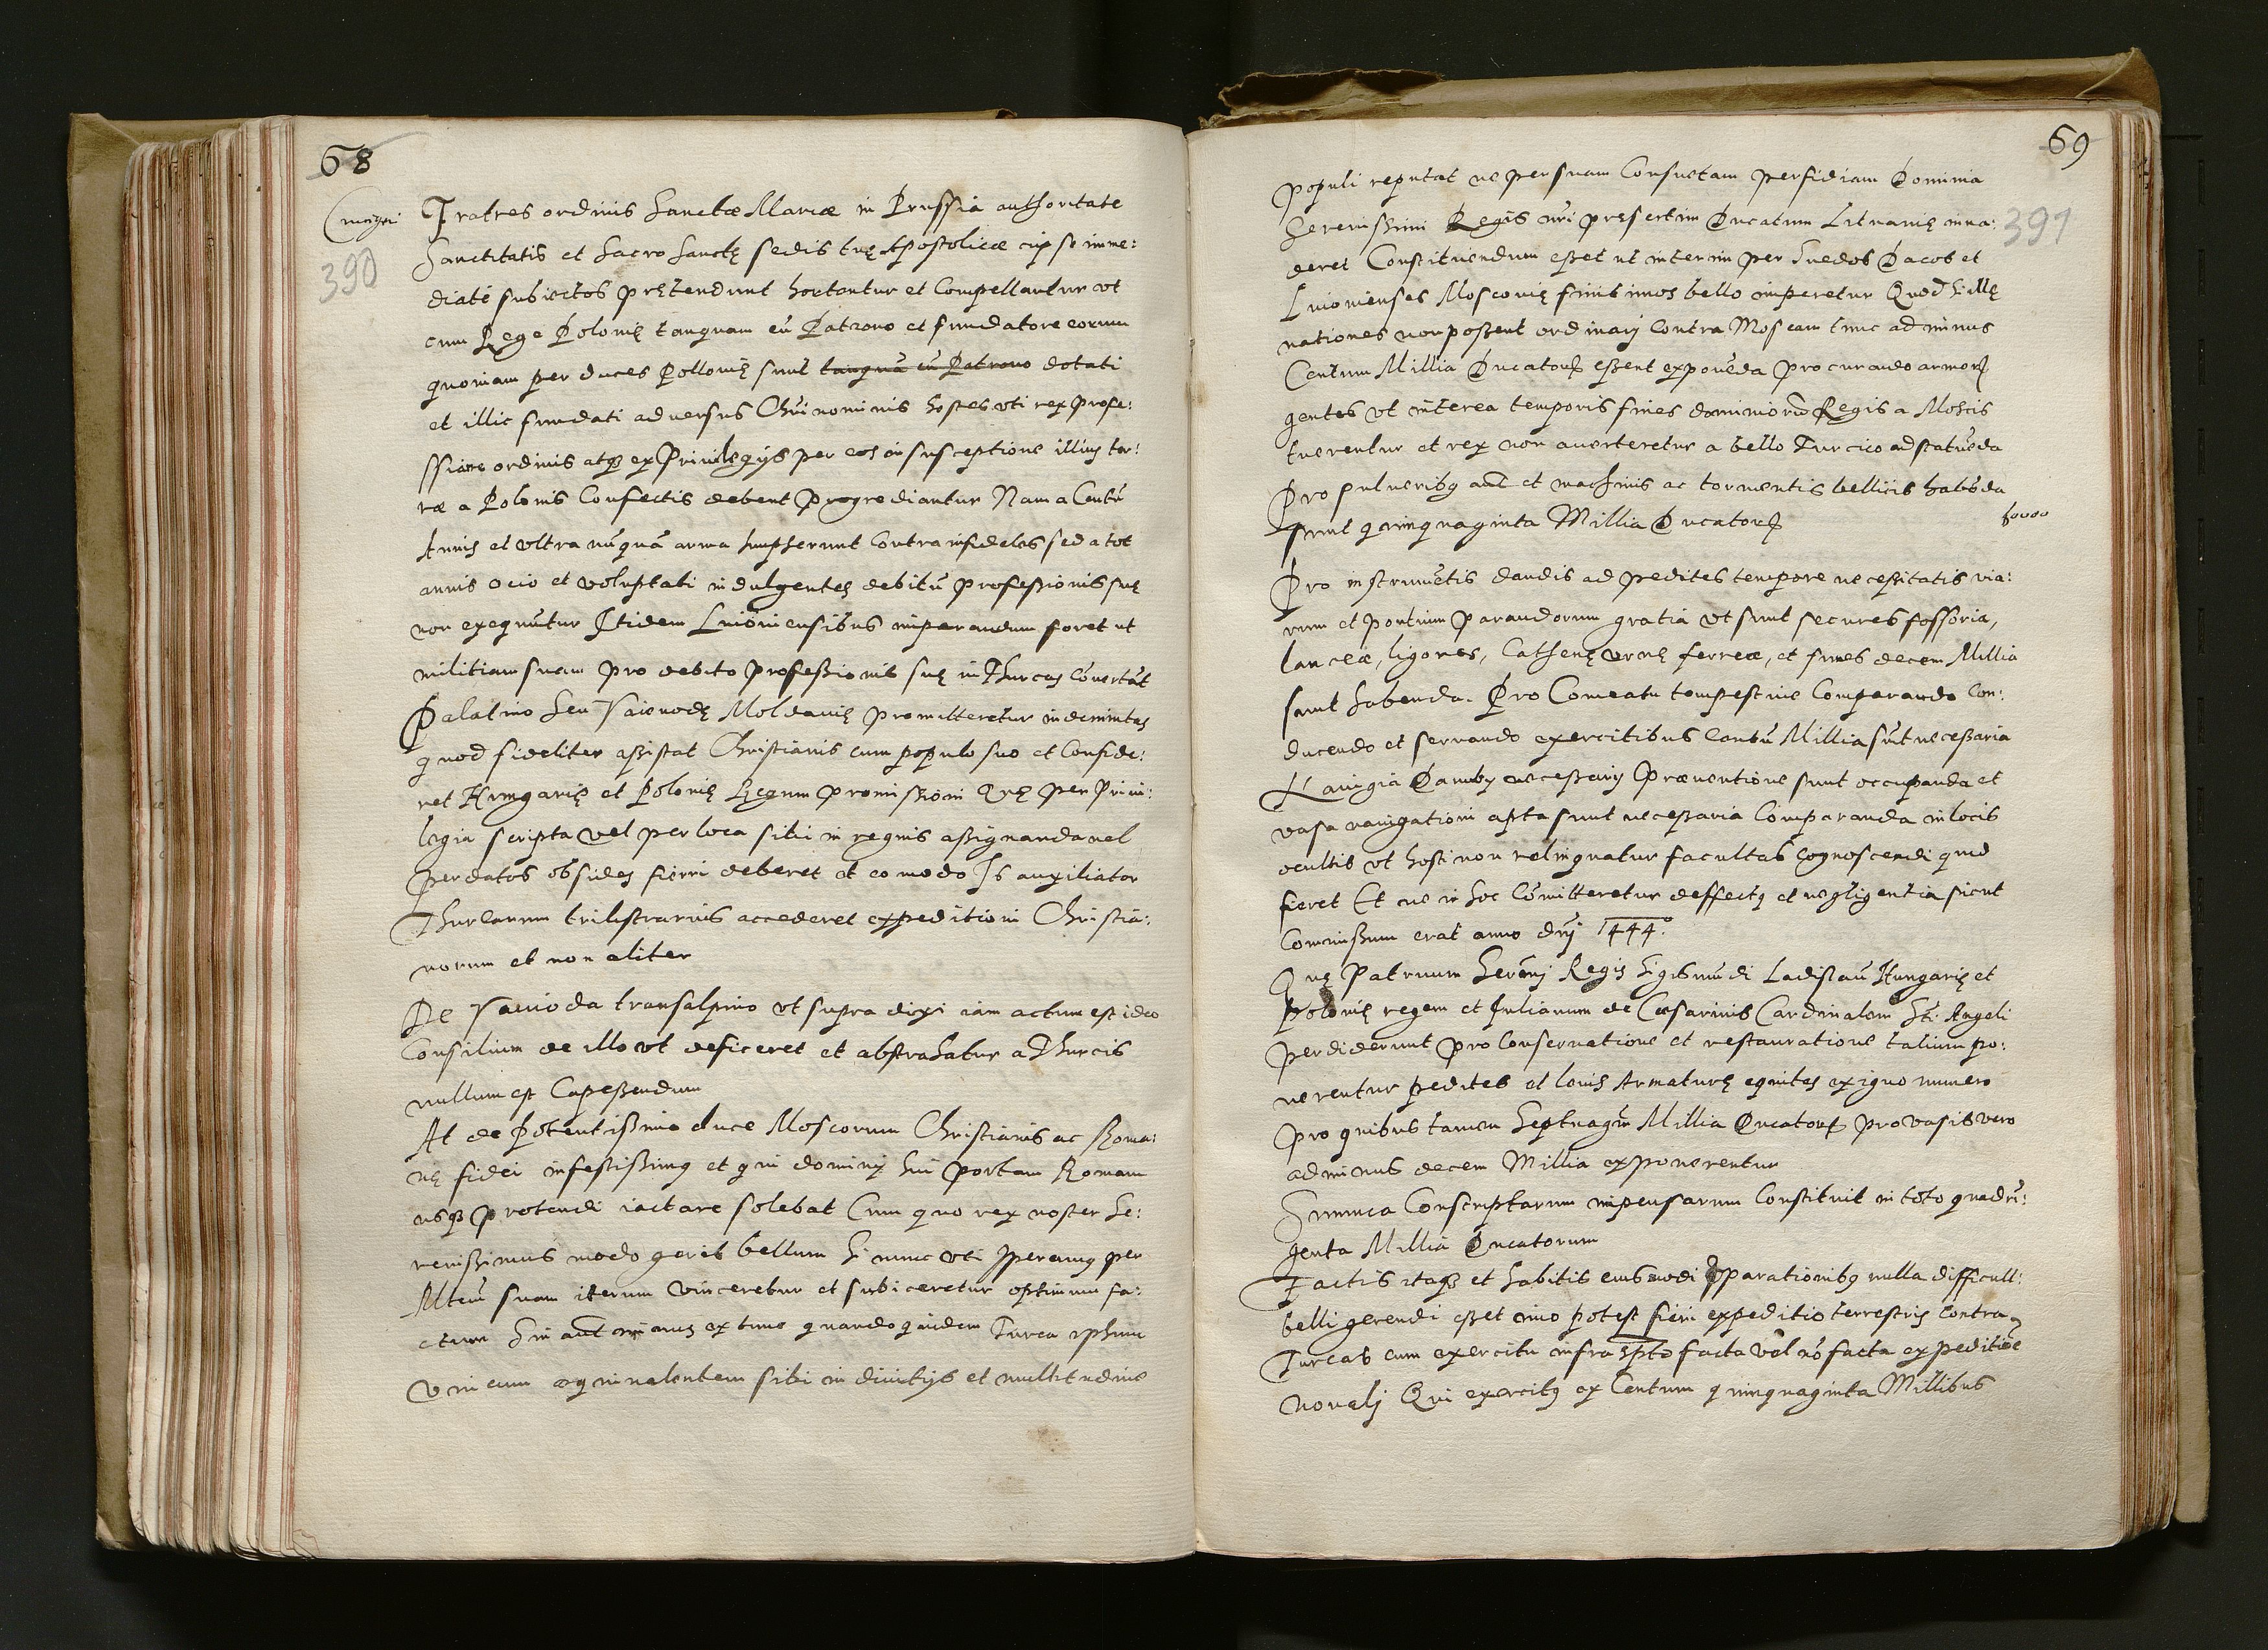 68
Crucigeri
390
Fratres ordinis Sanctæ Mariæ in Prussia authoritate
Sanctitatis et Sacro Sanctę sedis tuę Apostolicæ cui se imme:
diatè subiectos prętendunt hortentur et Compellantur vt
cum Rege Polonię tanquam cũ Patrono et fundatore eorum
quoniam per duces Pollonię sunt tanquã cũ Patrono dotati
et illic fundati aduersus Chri nominis hostes vti rex profe:
ssione ordinis atq ex Priuilegijs per eos in susceptione illius ter:
ræ a Polonis Confectis debent progrediantur Nam a Centũ
Annis et vltra nũquã arma sumpserunt Contra infideles sed a tot
annis ocio et voluptati indulgentes debitũ professionis suę
non exequũtur Itidem Liuoniensibus imperandum foret ut
militiam suam pro debito professionis suę in Thurcas cõuertãt
Palatino seu Vaiuodę Moldauię promitteretur indemnitas
quod fideliter assistat Christianis cum populo suo et Confide:
ret Hungarię et Polonię Regum promissioni Quę per Priui:
legia scripta vel per loca sibi in regnis assignanda uel
per datos obsides fieri deberet et eo modo Is auxiliator
Thurcarum tributarius accederet expeditioni Christia:
norum et non aliter
De Vaiuoda transalpino vt supra dixi iam actum est ideo
Consilium de illo vt deficeret et abstrahatur a Thurcis
nullum est Capessendum
At de potentissimo duce Moscorum Christianis ac Roma:
nę fidei infestissimo et qui dominij sui portam Romam
usq protendi iactare solebat Cum quo rex noster Se:
renissimus modo gerit bellum Si nunc vti speramus per
Mtem suam iterum vinceretur et subiceretur optimum fa:
ctum Sin aũt minus ex tunc quandoquidem Turca ipsum
vnicum æquiualentem sibi in diuitijs et multitudine
69
391
populi reputat ne per suam Consuetam perfidiam Dominia
Serenissimi Regis nri pręsertim Ducatum Lituanię inua:
deret Constituendum esset ut interim per Suedos Dacos et
Liuonienses Moscouię finitimos bello impeteretur Quod si illę
nationes non possent ordinari Contra Moscum tunc ad minus
Centum Millia Ducatorũ essent exponẽda pro curando armorũ
gentes vt interea temporis fines dominiorũ Regis a Moscis
tuerentur et rex non auerteretur a bello Turcico ad statuẽda
Pro pulueribus aũt et machinis ac tormentis bellicis habẽda
sunt quinquaginta Millia Ducatorũ
50000
Pro instrumẽtis dandis ad pedites tempore necessitatis via:
rum et pontium parandorum gratia vt sunt secures fossoria,
lanceæ, ligones, Cathenę vrnę ferreæ, et funes decem Millia
sunt habenda. Pro Comeatu tempestiue Comparando Con:
ducendo et seruando exercitibus Centũ Millia sũt necessaria
Nauigia Danuby necessarij præuentione sunt occupanda et
vasa nauigationi apta sunt necessaria Comparanda in locis
ocultis vt hosti non relinquatur facultas cognoscendi quid
fieret Et ne in hoc Cõmitteretur deffectus et negligentia sicut
Commissum erat anno dnj 1444.
Quę Patruum Serẽmj Regis Sigismũdi Ladislaũ Hungarię et
Polonię regem et Julianum de Cæsarinis Cardinalem Sti Angeli
perdiderunt pro Conseruatione et restauratione talium po:
nerentur pedites et leuis Armaturę equites exiguo numero
pro quibus tamen Septuagin Millia Ducatorũ pro vasis vero
ad minus decem Millia exponerentur
Summa Conscriptarum impensarum Constituit in toto quadrĩ:
genta Millia Ducatorum
Factis itaq et habitis eiusmodi pparationibus nulla difficult:
belligerendi esset imo potest fieri expeditio terrestris Contra
Turcas cum exercitu infra spto facta vel nõ facta expeditiõe
nouali Qui exercitus ex Centum quinquaginta Millibus